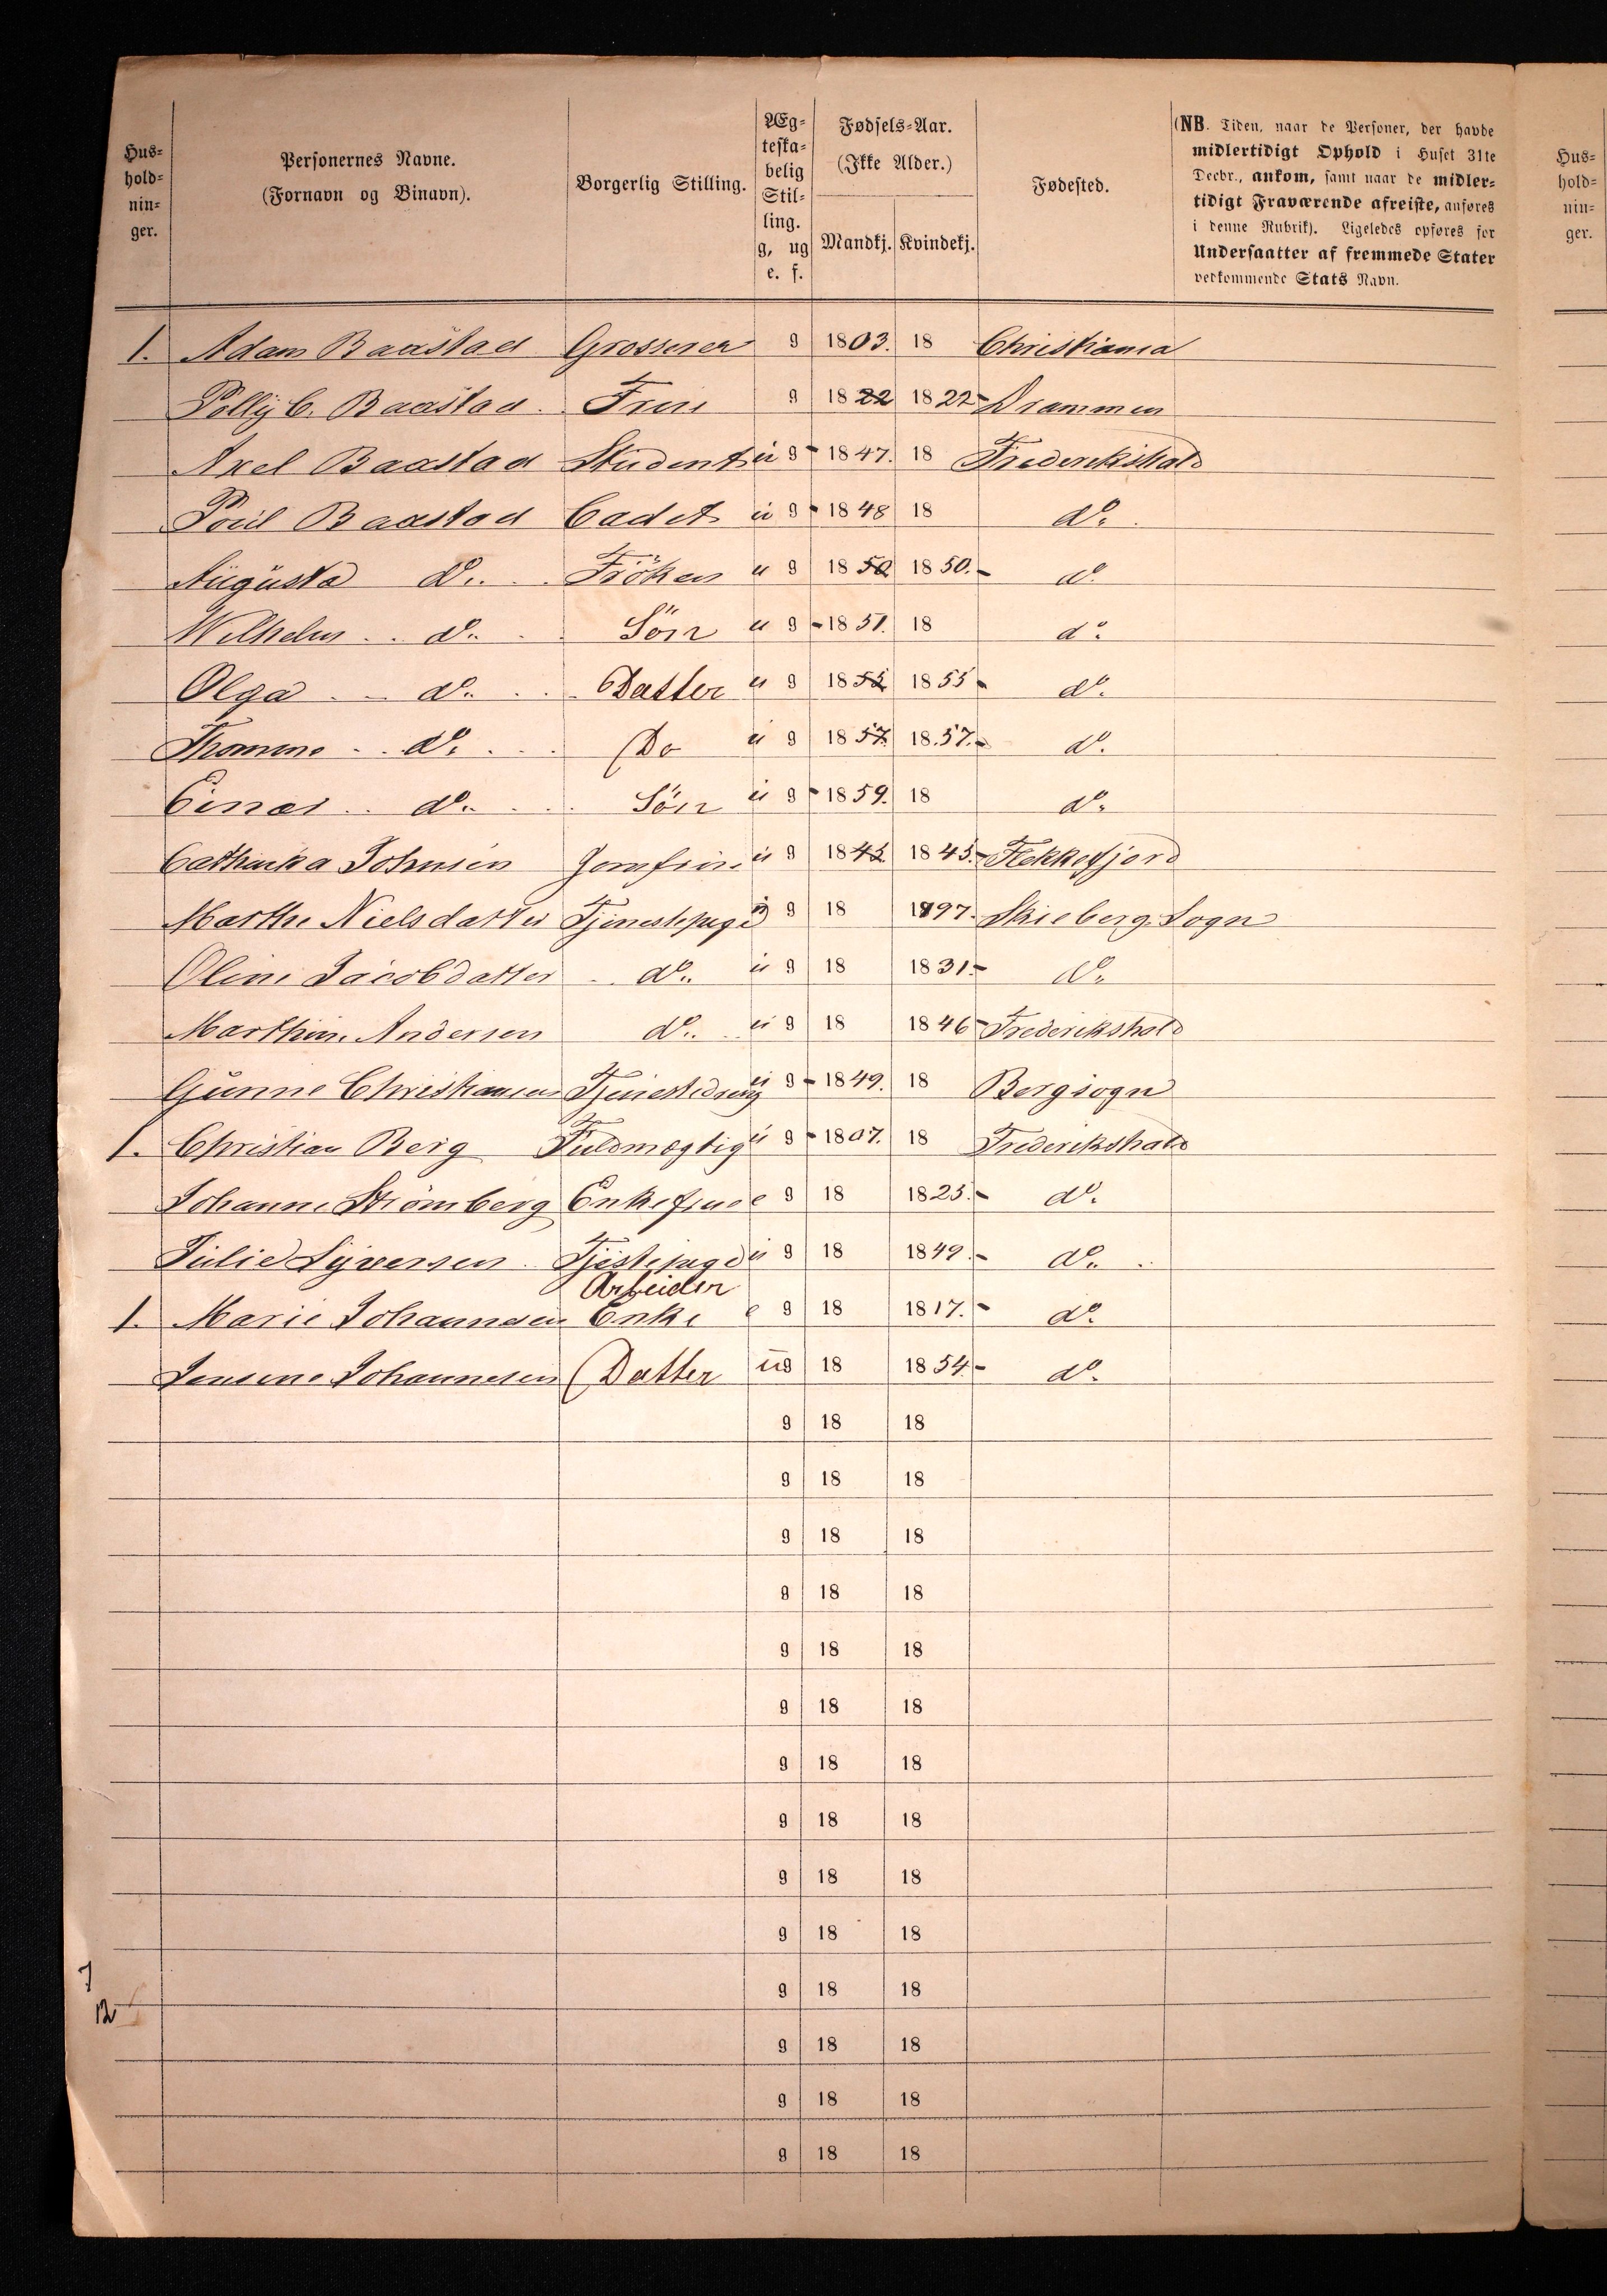 Hus-
hold-
nin-
ger.
Personernes Navne.
(Fornavn og Binavn).
Borgerlig Stilling.
Æg-
teska-
belig
Stil-
ling.
g, ug
e. f.
Fødsels-Aar.
(Ikke Alder.)
Mandkj. Kvindekj.
Fødested.
(NB. Tiden, naar de Personer, der havde
midlertidigt Ophold i Huset 31te
Decbr., ankom, samt naar de midler-
tidigt Fraværende afreiste, anføres
i denne Rubrik). Ligeledes opføres for
Undersaatter af fremmede Stater
vedkommende Stats Navn.
Hus-
hold-
nin-
ger.
1. Adam Baastad Grosserer g 1803. 18 Christiania
Polly C. Baastad. Frue g 1822 1822- Drammen
Axel Baastad Student ug - 1847. 18 Frederikshald
Poul Baastad Cadet ug - 1848 18 do.
Augusta do. Fröken ug 1850 1850.- do.
Wilhelm do. Sön ug - 1851. 18 do.
Olga do. Datter ug 1855 1855- do.
Thomine do. Do ug 1857 1857.- do.
Einar do. Sön ug - 1859. 18 do.
Cathinka Johnsen Jomfru ug 1845 1845.- Flekkefjord
Marthe Nielsdatter Tjenestepige ug 18 1797. Skieberg Sogn
Oline Jacobdatter do. ug 18 1831- do.
Marthine Andersen do. ug 18 1846- Frederikshald
Gunne Christiansen Tjenestedreng ug - 1849. 18 Bergsogn
1. Christian Berg Fuldmægtig ug - 1807. 18 Frederikshald
Johanne Strömberg Enkefrue e g 18 1825.- do.
Julie Syversen Tjstepige ug 18 1849.- do.
Arbeider
1. Marie Johannesen Enke e g 18 1817.- do.
Jensine Johannesen Datter ug 18 1854- do.
g 18 18
g 18 18
g 18 18
g 18 18
g 18 18
g 18 18
g 18 18
g 18 18
g 18 18
g 18 18
7
g 18 18
12
g 18 18
g 18 18
g 18 18